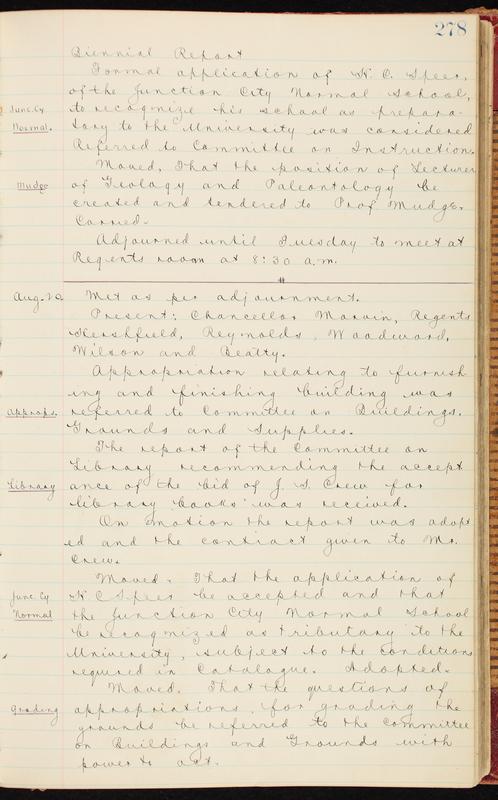 278
Biennial Report
Formal application of N. C. Speer,
of the Junction City Normal School,
Junc. Cy to recognize his school as prepara-
Normal. tory to the University was considered
Referred to Committee on Instruction.
Moved, That the position of Lecturer
Mudge of Geology and Paleontology be
created and tendered to Prof Mudge.
Carried.
Adjourned until Tuesday to meet at
Regents room at 8:30 a.m.
Aug. 20 Met as per adjournment.
Present: Chancellor Marvin, Regents
Hershfield, Reynolds, Woodward,
Wilson and Beatty.
Appropriation relating to furnish
ing and finishing building was
Approps. referred to Committee on Buildings.
Grounds and Supplies.
The report of the Committee on
Library recommending the accept
Library ance of the bid of J. S. Crew for
library books was received.
On motion the report was adopt
ed and the contract given to Mr.
Crew.
Moved. That the application of
Junc. Cy N C Speer be accepted and that
Normal the Junction City Normal School
be recognized as tributary to the
University, subject to the conditions
required in Catalogue. Adopted.
Moved. That the questions of
Grading appropriations for grading the
grounds be referred to the Committee
on Buildings and Grounds with
power to act.